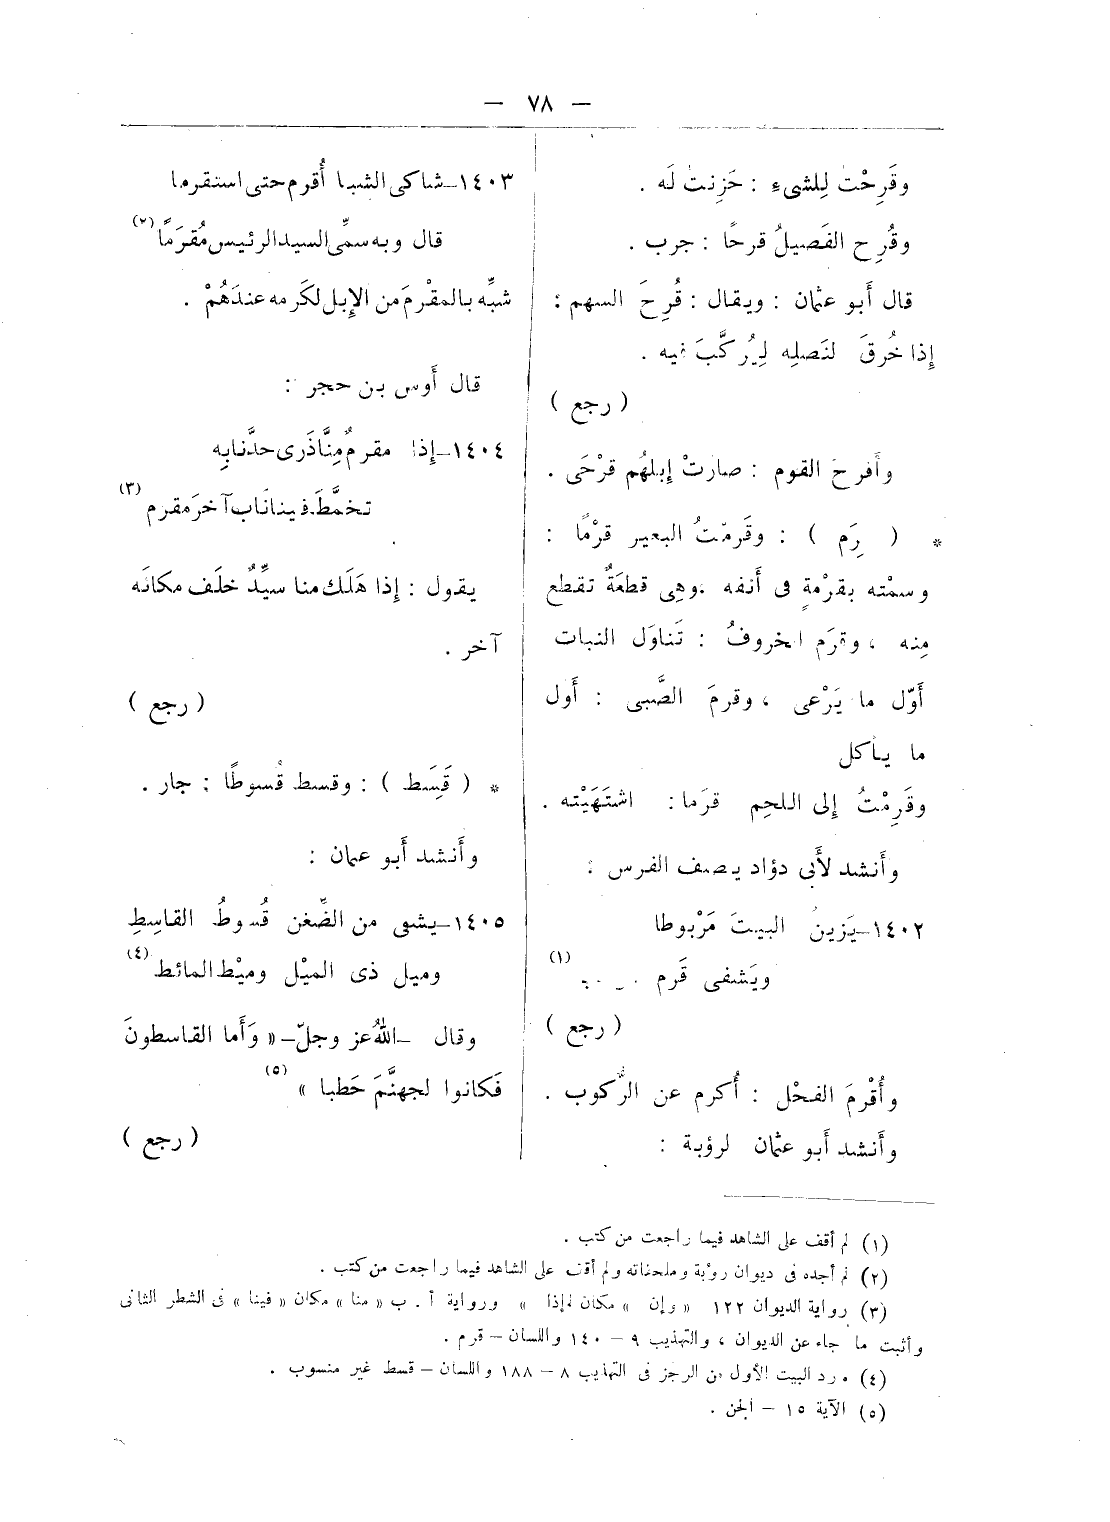 — ٧٨ —
وقَرِحْت لِلشىءِ : حَزِنت لَه .
وقُرِح الفَصيلُ قرحًا : جرب .
قال أَبو عثمان : ويقال : قُرِحَ السهم :
إِذا خُرقَ لنَصلِه لِيُركَّبَ فيه .
( رجع )
وأَقرحَ القوم : صارتْ إِبلهُم قرْحَى .
* ( رِم ) : وقَرمْتُ البعير قرْمًا :
وسمْته بقرْمةٍ فى أَنفه ،وهِى قطعَةٌ تقطع
مِنه ، وقرَم الخروفُ : تَناوَل النبات
أَوّل ما يَرْعى ، وقرمَ الصَّبى : أَول
ما يأكل
وقَرِمْتُ إِلى اللحِم قرَما : اشتَهَيْته .
وأَنشد لأَبى دؤاد يصف الفرس :
١٤٠٢–يَزينُ البيتَ مَرْبوطا
ويَشفى قَرم (١)
( رجع )
وأُقْرمَ الفحْل : أُكرم عن الرُّكوب .
وأَنشد أَبو عثمان لرؤبة :
١٤٠٣–شاكى الشبا أُقرم حتى استقرما
قال وبه سمِّى السيد الرئيس مُقرَمًا (٢)
شبِّه بالمقْرمَ من الإِبل لكَرمه عندَهُمْ .
قال أَوس بن حجر :
١٤٠٤–إِذا مقرمٌ مِنَّا ذَرى حدَّنابِه
تخمَّطَ فينا نَاب آخرَ مقرم (٣)
يقول : إِذا هَلَك منا سيِّدٌ خلَف مكانَه
آخر .
( رجع )
* ( قَسِط ) : وقسط قُسوطًا : جار .
وأَنشد أَبو عمان :
١٤٠٥–يشفى من الضِّغن قُسوطُ القاسِطِ
وميل ذى الميْل وميْط المائط (٤)
وقال –اللهُ عز وجلّ– « وَأَما القاسطونَ
فَكانوا لجهنَّمَ حَطبا » (٥)
( رجع )
(١) لم أقف على الشاهد فيما راجعت من كتب .
(٢) لم أجده فى ديوان رؤبة وملحقاته ولم أقف على الشاهد فيما راجعت من كتب .
(٣) رواية الديوان ١٢٢ « وإن » مكان إذا » ورواية أ . ب « منا » مكان « فينا » فى الشطر الثانى
وأثبت ما جاء عن الديوان ، والتهذيب ٩ – ١٤٠ واللسان – قرم .
(٤) ورد البيت الأول من الرجز فى التهذيب ٨ – ١٨٨ واللسان – قسط غير منسوب .
(٥) الآية ١٥ – الجن .